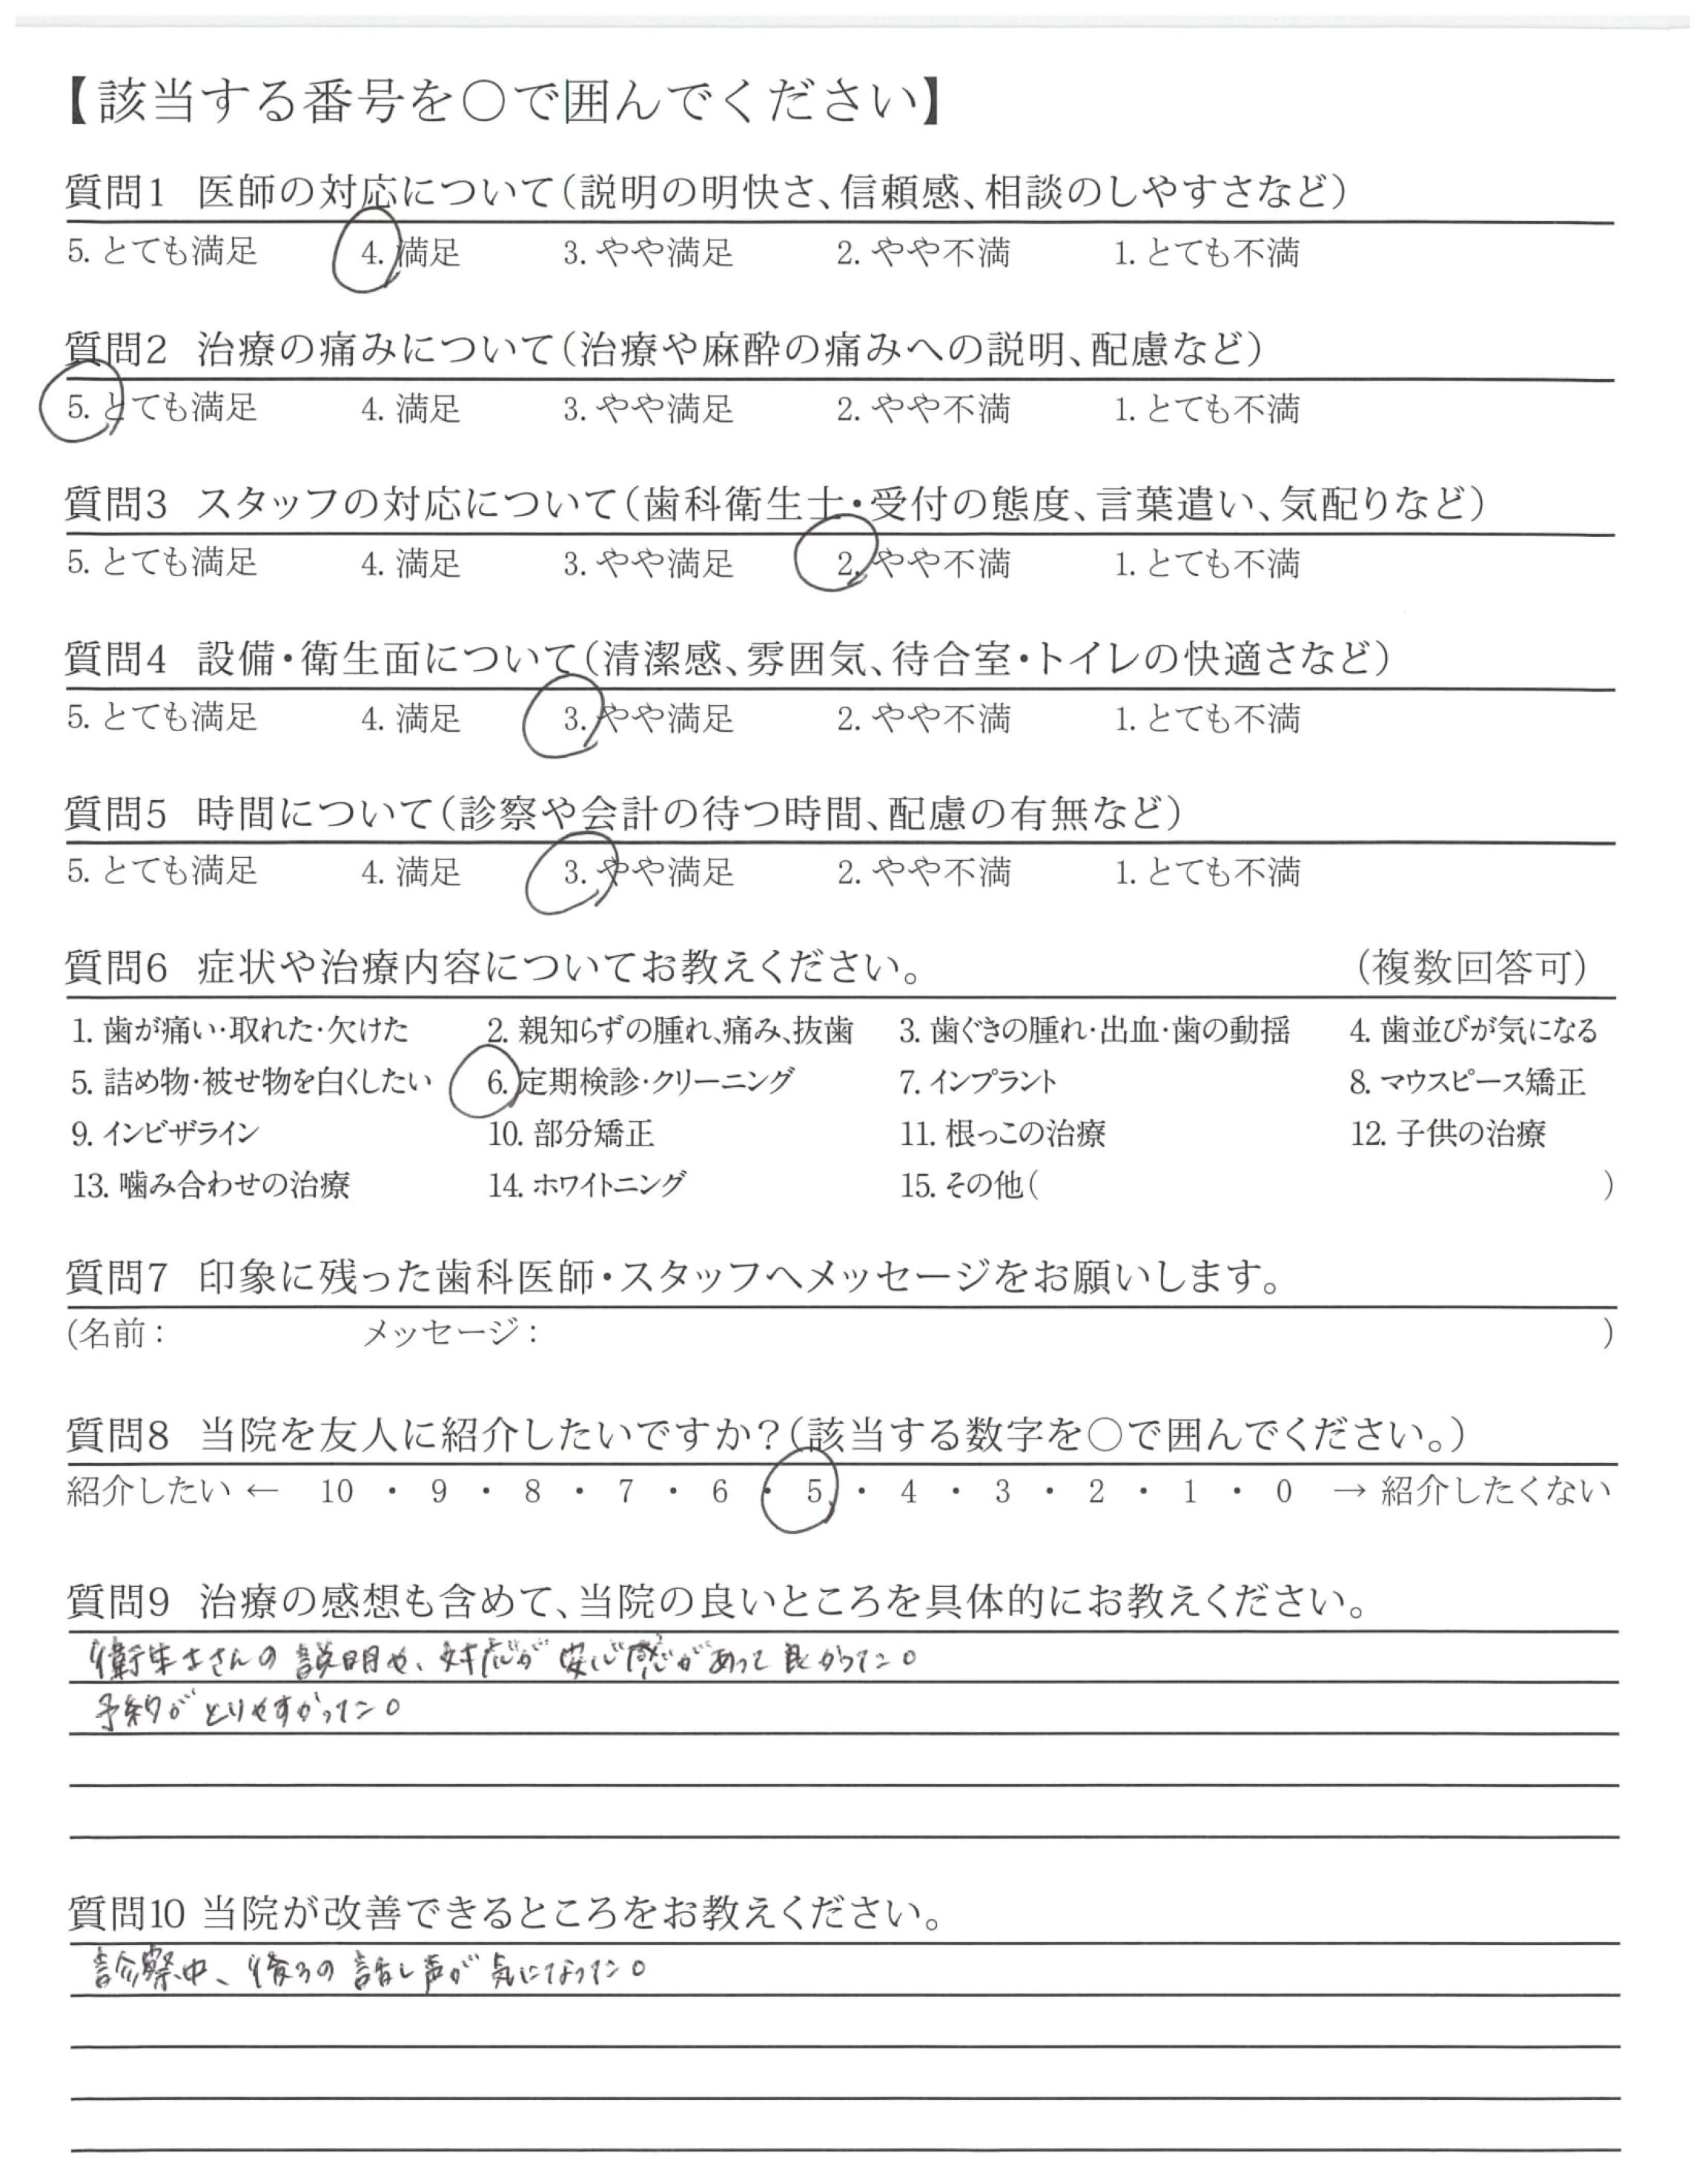 【該当する番号を○で囲んでください】
質問1 医師の対応について(説明の明快さ、信頼感、相談のしやすさなど)
5. とても満足 4. 満足 3. やや満足 2. やや不満 1. とても不満
質問2 治療の痛みについて(治療や麻酔の痛みへの説明、配慮など)
5. とても満足 4. 満足 3. やや満足 2. やや不満 1. とても不満
質問3 スタッフの対応について(歯科衛生士・受付の態度、言葉遣い、気配りなど)
5. とても満足 4. 満足 3. やや満足 2. やや不満 1. とても不満
質問4 設備・衛生面について(清潔感、雰囲気、待合室・トイレの快適さなど)
5. とても満足 4. 満足 3. やや満足 2. やや不満 1. とても不満
質問5 時間について(診察や会計の待つ時間、配慮の有無など)
5. とても満足 4. 満足 3. やや満足 2. やや不満 1. とても不満
質問6 症状や治療内容についてお教えください。 (複数回答可)
1. 歯が痛い・取れた・欠けた 2. 親知らずの腫れ、痛み、抜歯 3. 歯ぐきの腫れ・出血・歯の動揺 4. 歯並びが気になる
5. 詰め物・被せ物を白くしたい 6. 定期検診・クリーニング 7. インプラント 8. マウスピース矯正
9. インビザライン 10. 部分矯正 11. 根っこの治療 12. 子供の治療
13. 噛み合わせの治療 14. ホワイトニング 15. その他( )
質問7 印象に残った歯科医師・スタッフへメッセージをお願いします。
(名前: メッセージ: )
質問8 当院を友人に紹介したいですか?(該当する数字を○で囲んでください。)
紹介したい ← 10 ・ 9 ・ 8 ・ 7 ・ 6 ・ 5 ・ 4 ・ 3 ・ 2 ・ 1 ・ 0 → 紹介したくない
質問9 治療の感想も含めて、当院の良いところを具体的にお教えください。
衛生士さんの説明や、対応が安心感があって良かった。
予約がとりやすかった。
質問10 当院が改善できるところをお教えください。
診察中、後ろの話し声が気になった。